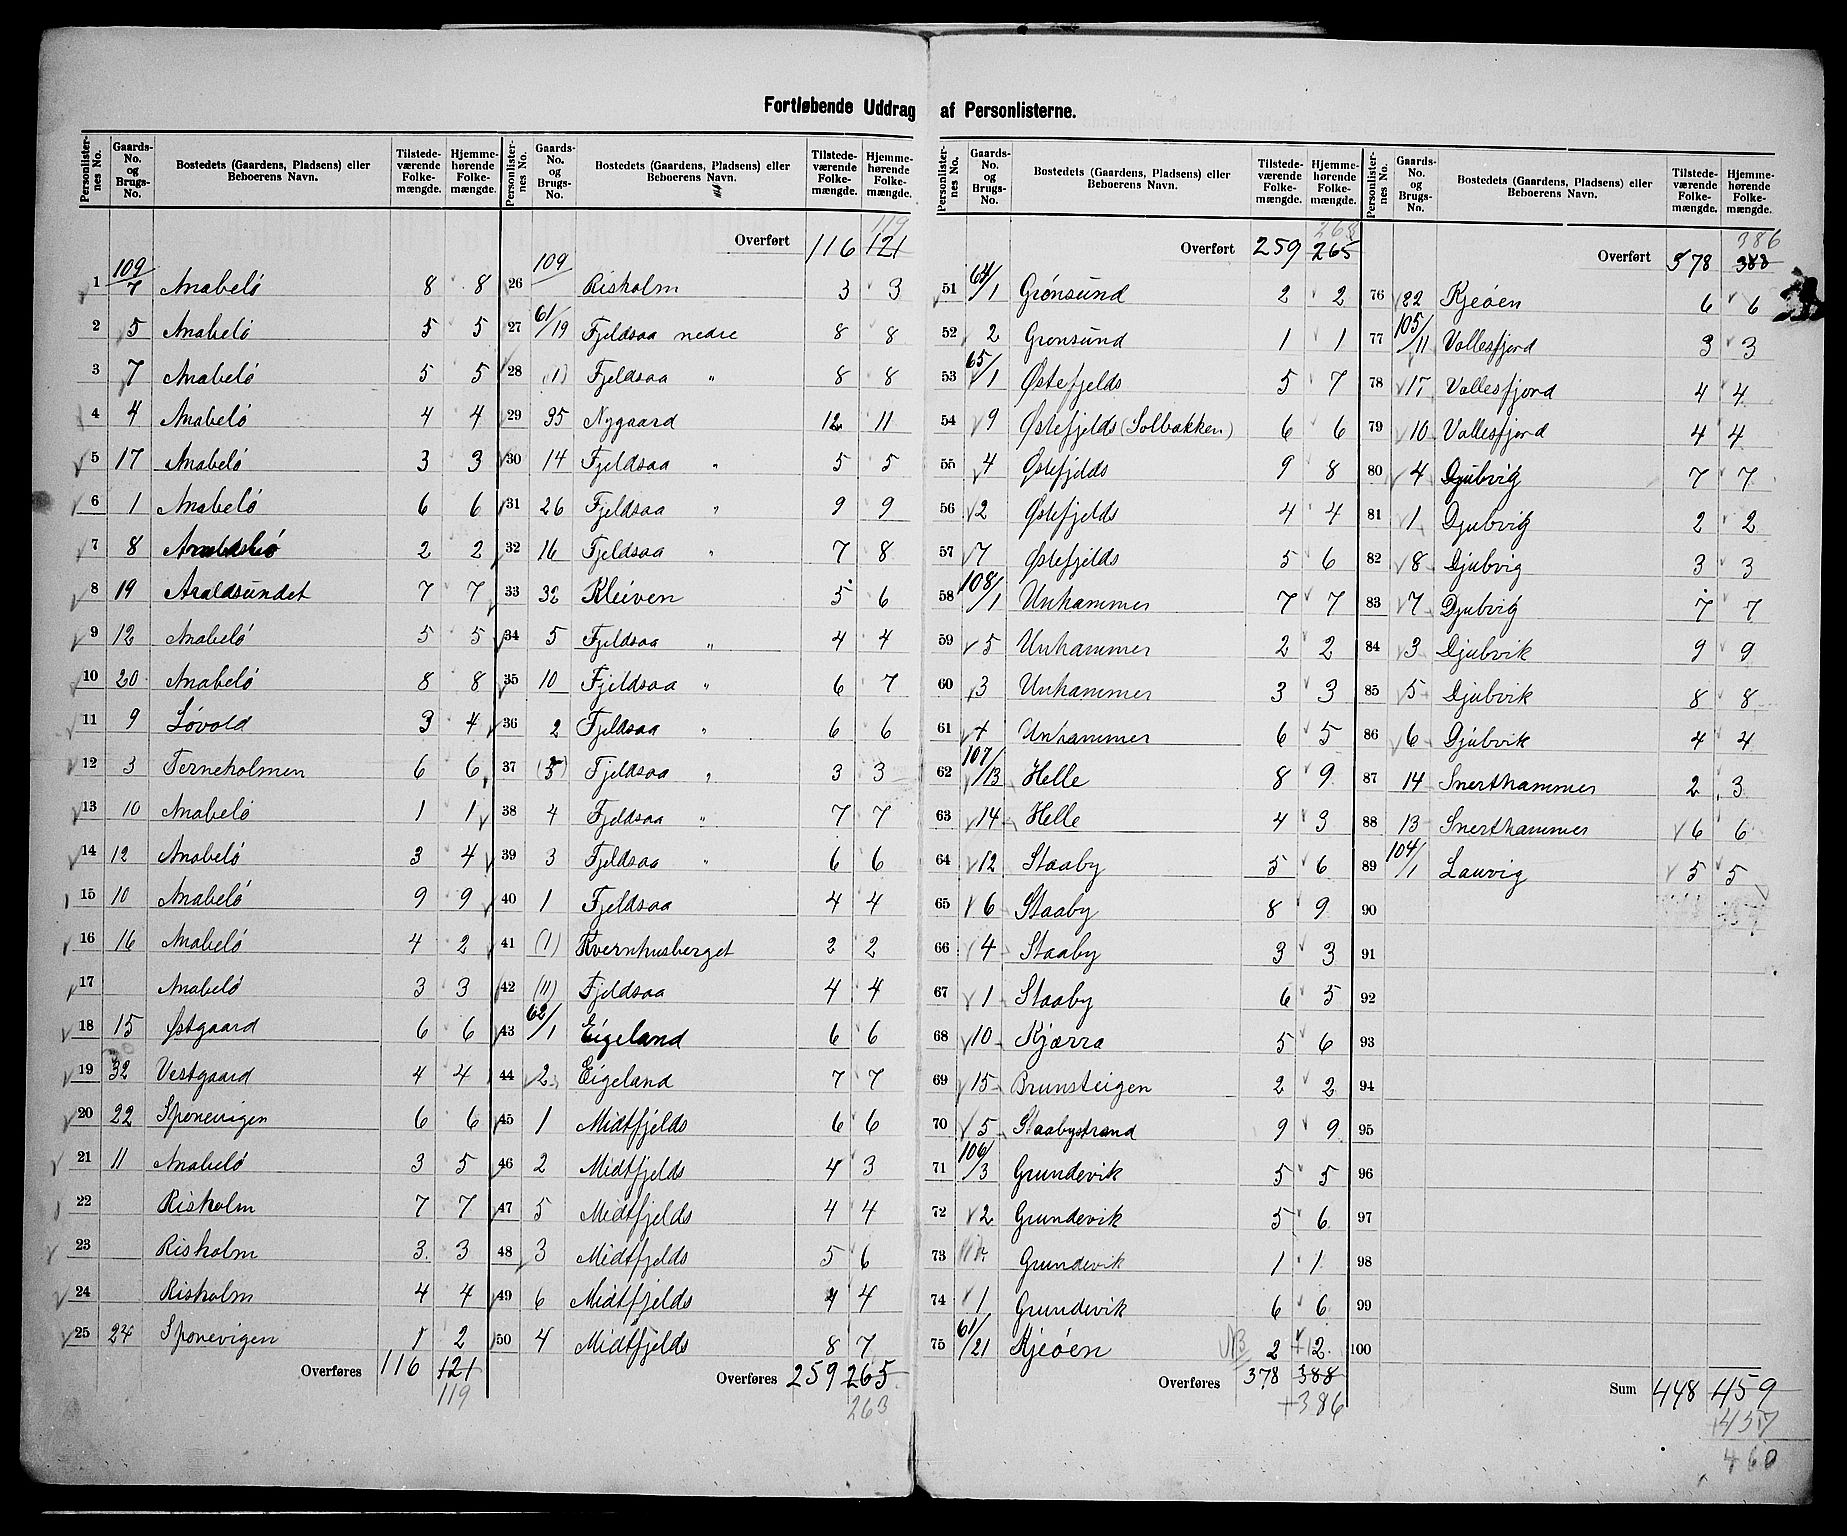 Fortløbende Uddrag af Personlisterne.
Personlisternes No. | Gaards-No. og Brugs-No. | Bostedets (Gaardens, Pladsens) eller Beboerens Navn. | Tilstedeværende Folkemængde. | Hjemmehørende Folkemængde.
1 109/7 Anabelø 8 8
2 5 Anabelø 5 5
3 7 Anabelø 5 5
4 4 Anabelø 4 4
5 17 Anabelø 3 3
6 1 Anabelø 6 6
7 8 Anabelø 2 2
8 19 Araldsundet 7 7
9 12 Anabelø 5 5
10 20 Anabelø 8 8
11 9 Løvold 3 4
12 3 Terneholmen 6 6
13 10 Anabelø 1 1
14 12 Anabelø 3 4
15 10 Anabelø 9 9
16 16 Anabelø 4 2
17 Anabelø 3 3
18 15 Østgaard 6 6
19 32 Vestgaard 4 4
20 22 Sponevigen 6 6
21 11 Anabelø 3 5
22 Risholm 7 7
23 Risholm 3 3
24 Risholm 4 4
25 24 Sponevigen 1 2
Overføres 116 121
119
Personlisternes No. | Gaards-No. og Brugs-No. | Bostedets (Gaardens, Pladsens) eller Beboerens Navn. | Tilstedeværende Folkemængde. | Hjemmehørende Folkemængde.
119
Overført 116 121
26 109/ Risholm 3 3
27 61/19 Fjeldsaa nedre 8 8
28 (1) Fjeldsaa " 8 8
29 35 Nygaard 12 11
30 14 Fjeldsaa " 5 5
31 26 Fjeldsaa " 9 9
32 16 Fjeldsaa " 7 8
33 32 Kleiven 5 6
34 5 Fjeldsaa " 4 4
35 10 Fjeldsaa " 6 7
36 2 Fjeldsaa " 6 6
37 (5) Fjeldsaa " 3 3
38 4 Fjeldsaa " 7 7
39 3 Fjeldsaa " 6 6
40 1 Fjeldsaa 4 4
41 (1) Kvernhusberget 2 2
42 (11) Fjeldsaa 4 4
43 62/1 Eigeland 6 6
44 2 Eigeland 7 7
45 1 Midtfjelds 6 6
46 2 Midtfjelds 4 3
47 5 Midtfjelds 4 4
48 3 Midtfjelds 5 6
49 6 Midtfjelds 4 4
50 4 Midtfjelds 8 7
Overføres 259 265
263
Personlisternes No. | Gaards-No. og Brugs-No. | Bostedets (Gaardens, Pladsens) eller Beboerens Navn. | Tilstedeværende Folkemængde. | Hjemmehørende Folkemængde.
263
Overført 259 265
51 64/1 Grønsund 2 2
52 2 Grønsund 1 1
53 65/1 Østefjelds 5 7
54 9 Østefjelds (Solbakken) 6 6
55 4 Østefjelds 9 8
56 2 Østefjelds 4 4
57 7 Østefjelds 5 6
58 108/1 Unhammer 7 7
59 5 Unhammer 2 2
60 3 Unhammer 3 3
61 4 Unhammer 6 5
62 107/13 Helle 8 9
63 14 Helle 4 3
64 12 Staaby 5 6
65 6 Staaby 8 9
66 4 Staaby 3 3
67 1 Staaby 6 5
68 10 Kjærra 5 6
69 15 Brunsteigen 2 2
70 5 Staabystrand 9 9
71 106/3 Grundevik 5 5
72 2 Grundevik 5 6
73 Grundevik 1 1
74 1 Grundevik 6 6
75 61/21 Kjeøen NB 2 2
Overføres 378 388
386
Personlisternes No. | Gaards-No. og Brugs-No. | Bostedets (Gaardens, Pladsens) eller Beboerens Navn. | Tilstedeværende Folkemængde. | Hjemmehørende Folkemængde.
386
Overført 378 388
76 22 Kjeøen 6 6
77 105/11 Vollesfjord 3 3
78 15 Vollesfjord 4 4
79 10 Vollesfjord 4 4
80 4 Djubvig 7 7
81 1 Djubvig 2 2
82 8 Djubvig 3 3
83 7 Djubvig 7 7
84 3 Djubvik 9 9
85 5 Djubvik 8 8
86 6 Djubvik 4 4
87 14 Snerthammer 2 3
88 13 Snerthammer 6 6
89 104/1 Lauvig 5 5
90
91
92
93
94
95
96
97
98
99
100
Sum 448 459
457
460